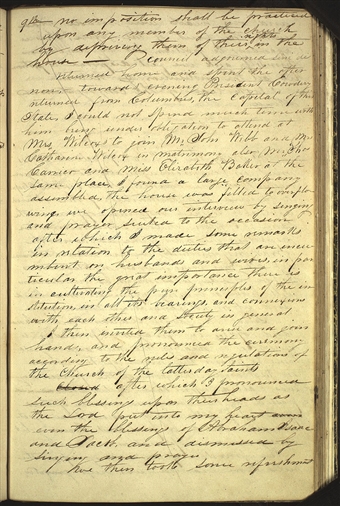 no imposition shall be practiced
upon any member of the church
by depriving them of their in the
house — Council adjourned sin die
returned home and spent the after
noon. towards evening President Cowdery
returned from Columbus, the capital of the
State, I could not spend much time with
him being under obligation to attend at
Mrs Wilcox to join Mr John Webb and Mrs
Catharine Wilcox in matrimony also Mr Thos
Carrico and Miss Elizabeth Baker at the
same place, I found a large company
assembled, the house was filled to overflo
wing, we opened our interview by singing
and prayer suited to the occasion
after which I made some remarks
in relation to the duties that are incu
mbent on husbands and wives, in par
ticular the great importance there is
in cultivating the pure principles of the in
stitution, in all its bearings, and connexions
with each other and Society in general
I then invited them to arise and join
hands, and pronounced the ceremony
according to the rules and regulations of
the Church of the Latter day Saints
after which I pronounced
such blessings upon their heads as
the Lord put into my heart
even the blessings of Abraham Isaac
and Jacob, and dismissed by
singing and prayer
we then took some refreshment